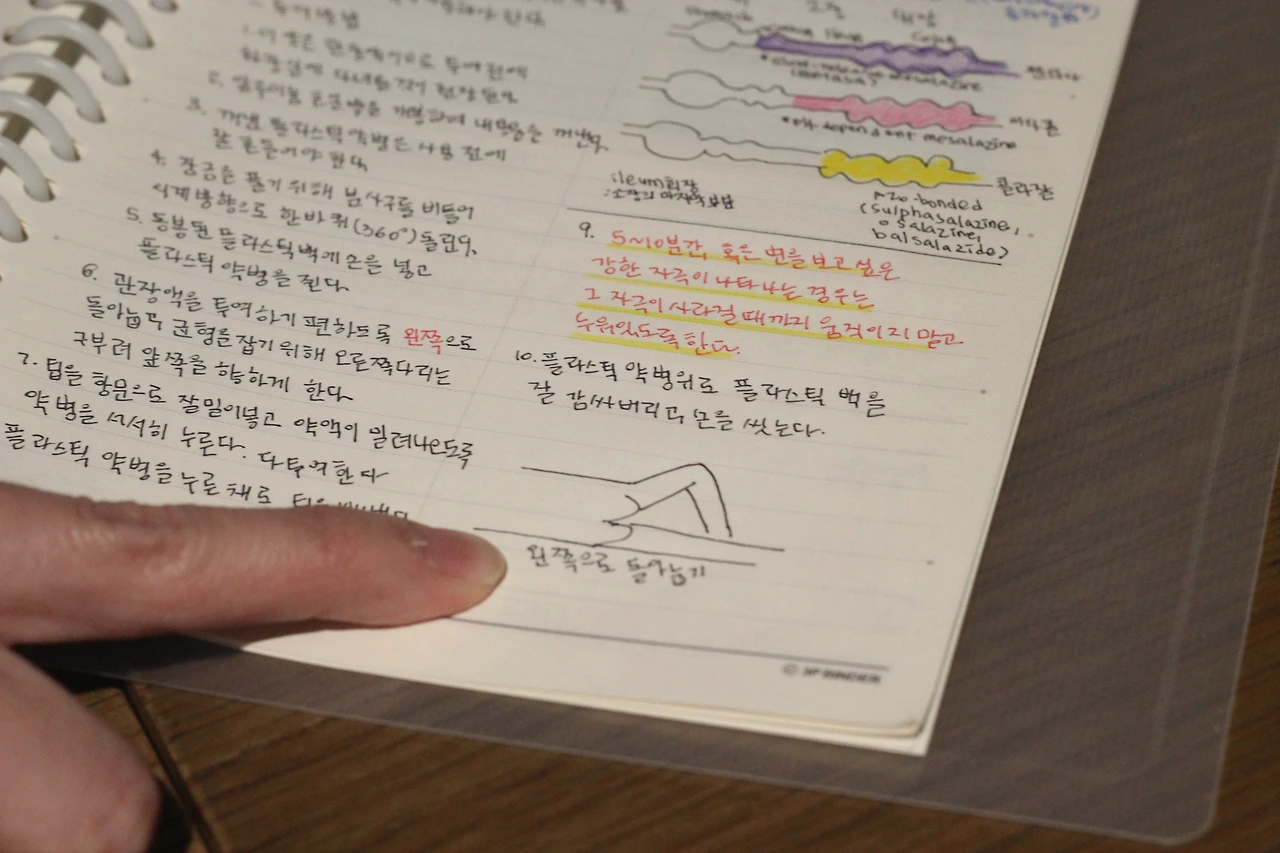 1. 이 약은 투여 전에
화장실에 다녀올 것이 권장된다
2. 알루미늄 포장을 개봉하여 내용물을 꺼낸다.
3. 꺼낸 플라스틱 약병은 사용 전에
잘 흔들어야 한다.
4. 잠금을 풀기 위해 봄사구를 비틀어
시계방향으로 한바퀴(360°) 돌린다.
5. 동봉된 플라스틱백에 손을 넣고
플라스틱 약병을 쥔다.
6. 관장액을 투여하기 편하도록 왼쪽으로
돌아눕고 균형을 잡기 위해 오른쪽다리는
구부려 앞쪽을 향하게 한다.
7. 팁을 항문으로 잘 밀어넣고 약액이 밀려나오도록
약병을 서서히 누른다. 다 투여한다
플라스틱 약병을 누른 채로 팁을
펜타사
mesalazine
아사콜
*pH-dependent mesalazine
콜라잘
ileum회장
:소장의 마지막 부분
Azo-bonded
(sulphasalazine,
osalazine,
balsalazide)
9. 5~10분간, 혹은 변을 보고 싶은
강한 자극이 나타나는 경우는
그 자극이 사라질 때까지 움직이지 말고
누워있도록 한다.
10. 플라스틱 약병위로 플라스틱 백을
잘 감싸버리고 손을 씻는다.
왼쪽으로 돌아눕기